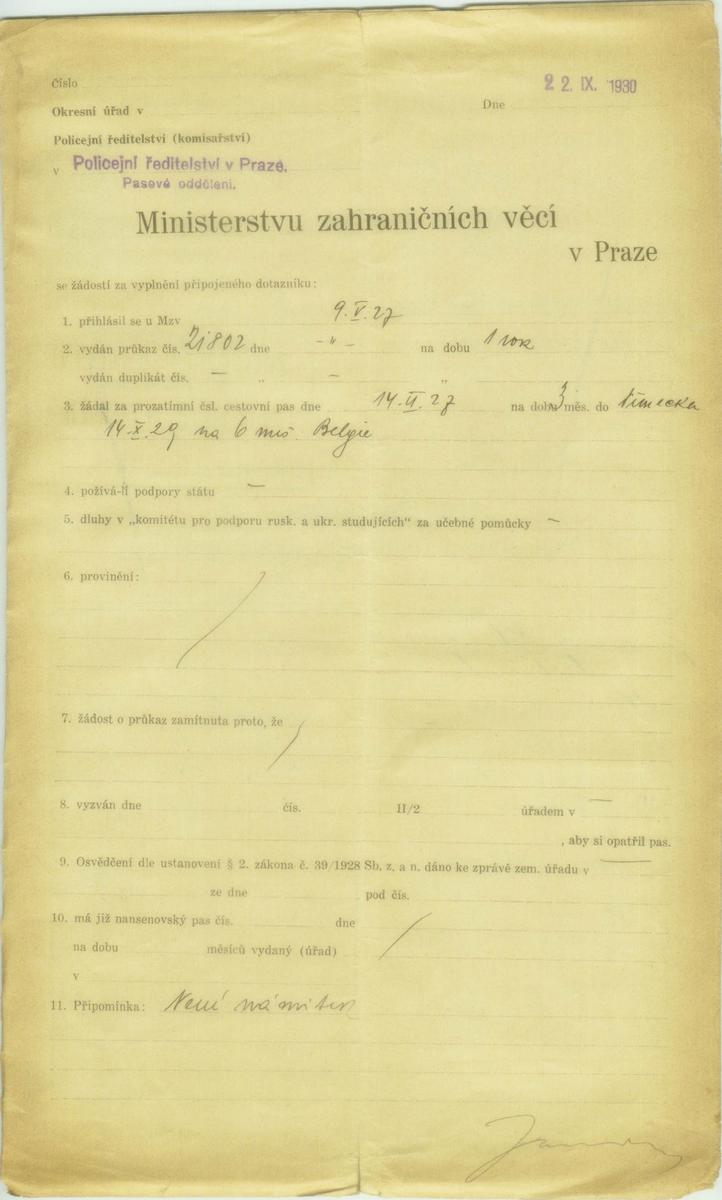 Číslo
22. IX. 1930
Dne
Okresní úřad v
Policejní ředitelství (komisařství)
v Policejní ředitelství v Praze.
Pasové oddělení.
Ministerstvu zahraničních věcí
v Praze
se žádostí za vyplnění připojeného dotazníku:
1. přihlásil se u Mzv 9.V.27
2. vydán průkaz čís. 21802 dne -"- na dobu 1 rok
vydán duplikát čís. — „ — „
3. žádal za prozatímní čsl. cestovní pas dne 14.II.27 na dobu 3 měs. do
14.X.29 na 6 měs. Belgie
4. požívá-li podpory státu —
5. dluhy v „komitétu pro podporu rusk. a ukr. studujících“ za učebné pomůcky —
6. provinění:
7. žádost o průkaz zamítnuta proto, že
8. vyzván dne čís. II/2 úřadem v —
, aby si opatřil pas.
9. Osvědčení dle ustanovení § 2. zákona č. 39/1928 Sb. z. a n. dáno ke zprávě zem. úřadu v —
ze dne pod čís.
10. má již nansenovský pas čís. dne
na dobu měsíců vydaný (úřad)
v
11. Připomínka: Není námitek